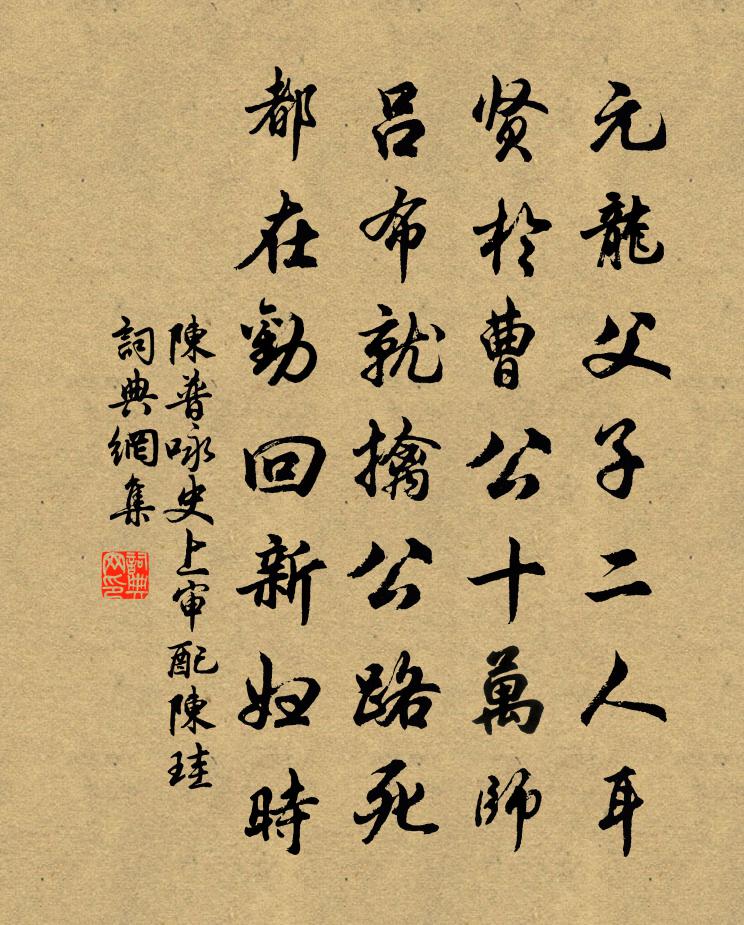 元龍父子二人耳
贤於曹公十萬師
呂布就擒公路死
都在勸回新妇時
陳普咏史上审配陳珪
詞典網集
詞典
网印